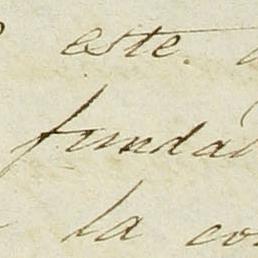 este
funda
la co